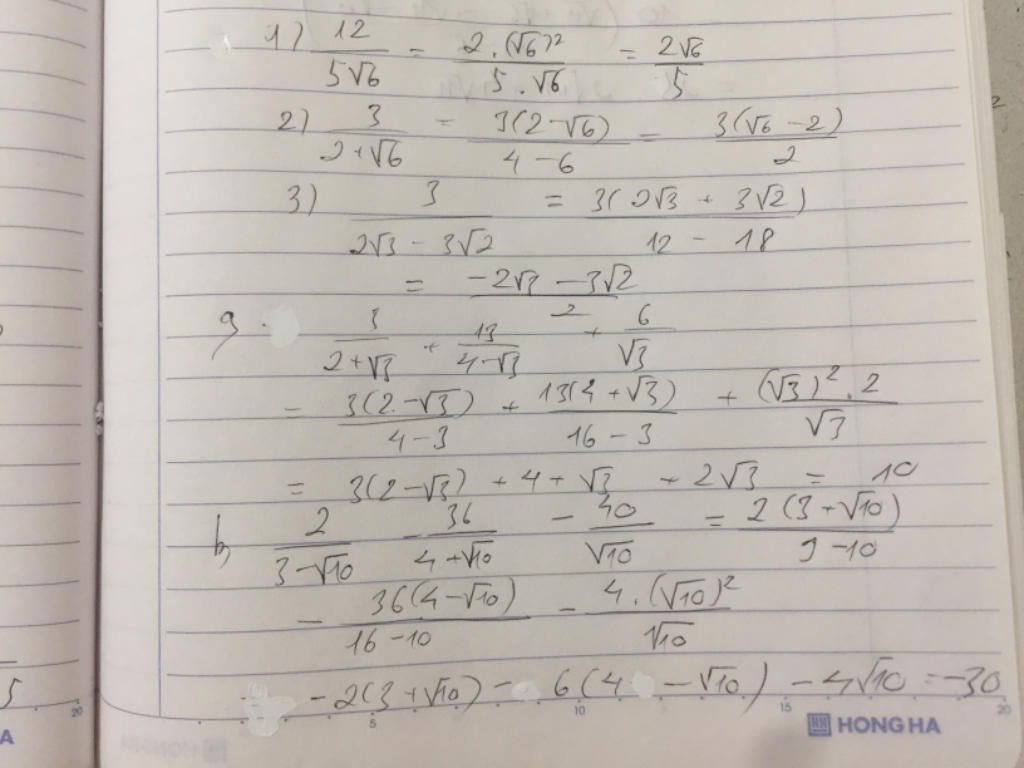 1) 12/(5√6) = 2.(√6)²/(5.√6) = 2√6/5
2) 3/(2+√6) = 3(2-√6)/(4-6) = 3(√6-2)/2
3) 3/(2√3-3√2) = 3(2√3+3√2)/(12-18)
= (-2√3-3√2)/2
a, 3/(2+√3) + 13/(4-√3) + 6/√3
= 3(2-√3)/(4-3) + 13(4+√3)/(16-3) + (√3)².2/√3
= 3(2-√3) + 4 + √3 + 2√3 = 10
b, 2/(3-√10) - 36/(4+√10) - 40/√10 = 2(3+√10)/(9-10)
- 36(4-√10)/(16-10) - 4.(√10)²/√10
-2(3+√10) - 6(4-√10) - 4√10 = -30
5 10 15 20
HONG HA